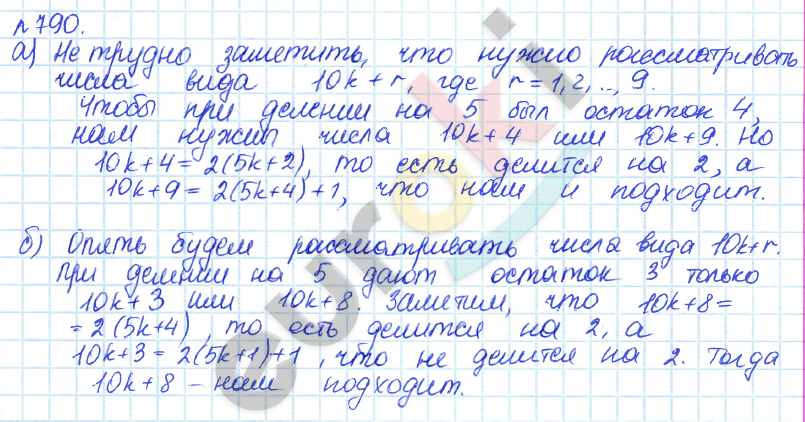 №790.
а) Не трудно заметить, что нужно рассматривать
числа вида 10k+r, где r=1,2,..,9.
Чтобы при делении на 5 был остаток 4,
нам нужны числа 10k+4 или 10k+9. Но
10k+4=2(5k+2), то есть делится на 2, а
10k+9=2(5k+4)+1, что нам и подходит.
б) Опять будем рассматривать числа вида 10k+r.
При делении на 5 дают остаток 3 только
10k+3 или 10k+8. Заметим, что 10k+8=
=2(5k+4), то есть делится на 2, а
10k+3=2(5k+1)+1, что не делится на 2. Тогда
10k+8 – нам подходит.
euroki